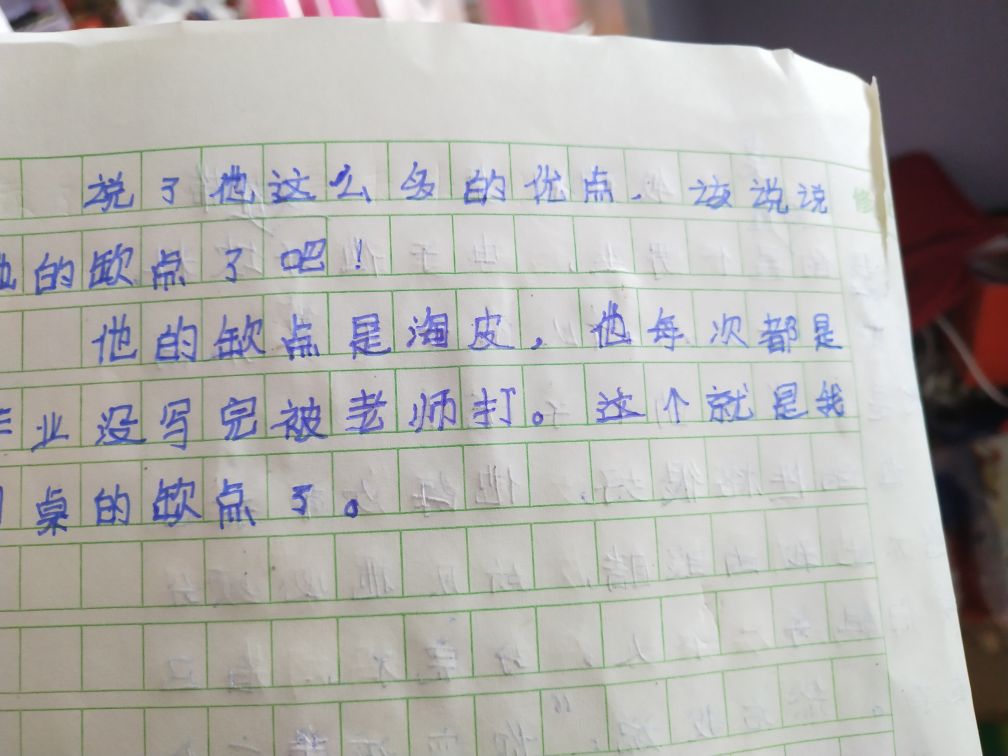 说了他这么多的优点.该说说
他的缺点了吧!
他的缺点是淘皮,他每次都是
作业没写完被老师打。这个就是我
同桌的缺点了。